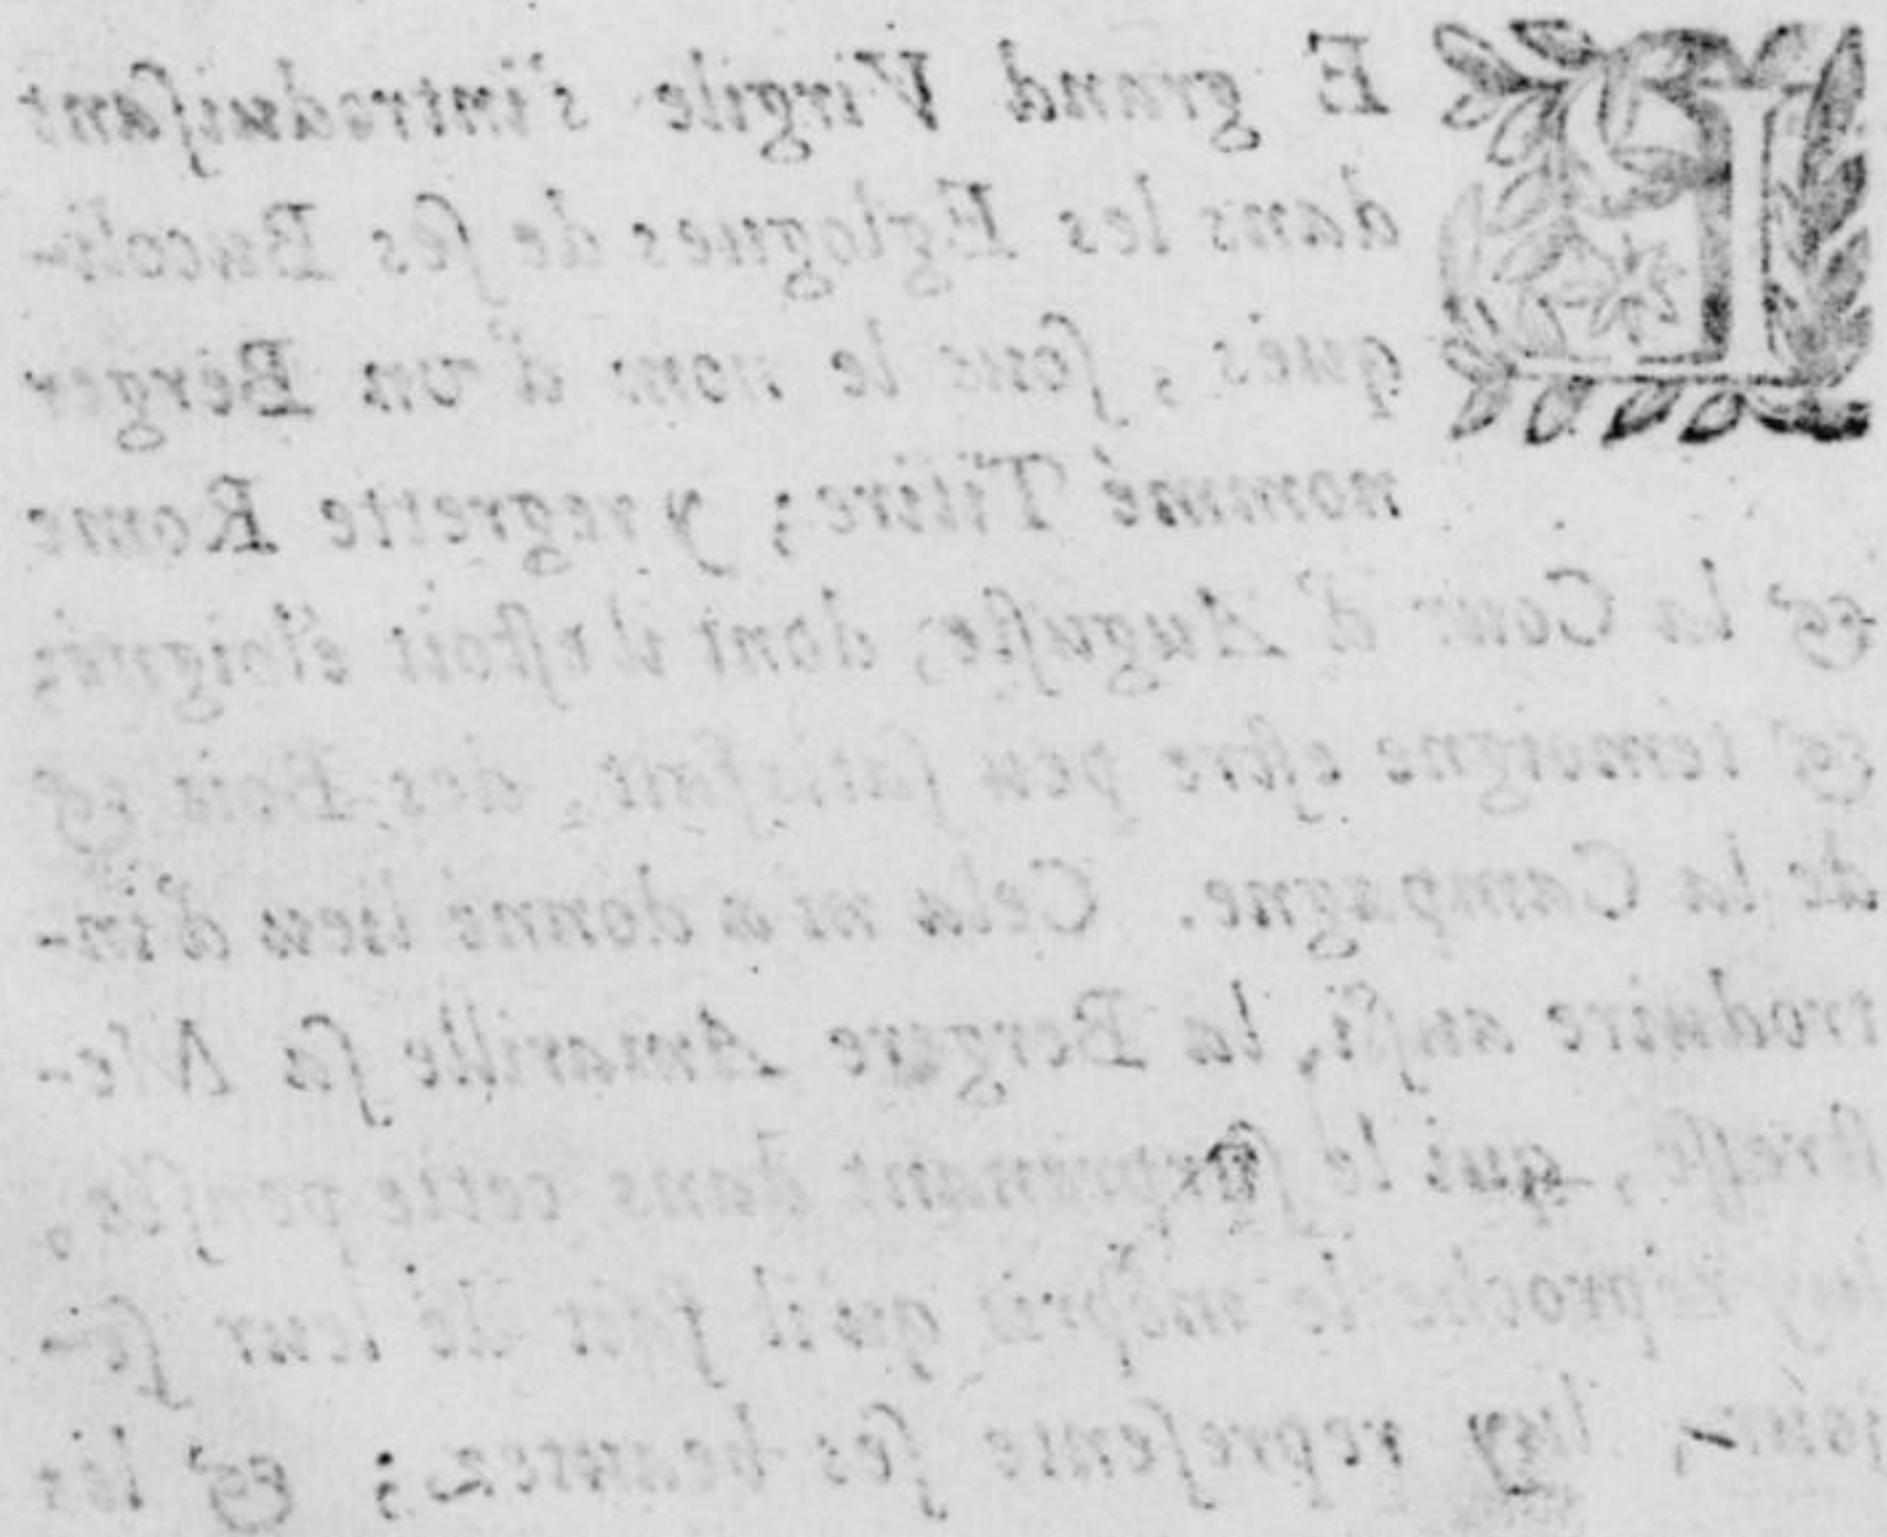 LE grand Virgile s'introduisant
dans les Eglogues de ses Bucoli-
ques, sous le nom d'vn Berger
nommé Titire; y regrette Rome
& la Cour d'Auguste, dont il estoit éloigné;
& témoigne estre peu satisfait des Bois &
de la Campagne. Cela m'a donné lieu d'in-
troduire aussi, la Bergere Amarille sa Me-
stresse, qui le surprenant dans cette pensée,
luy reproche le mépris qu'il fait de leur se-
jour, luy represente ses beautez; & les